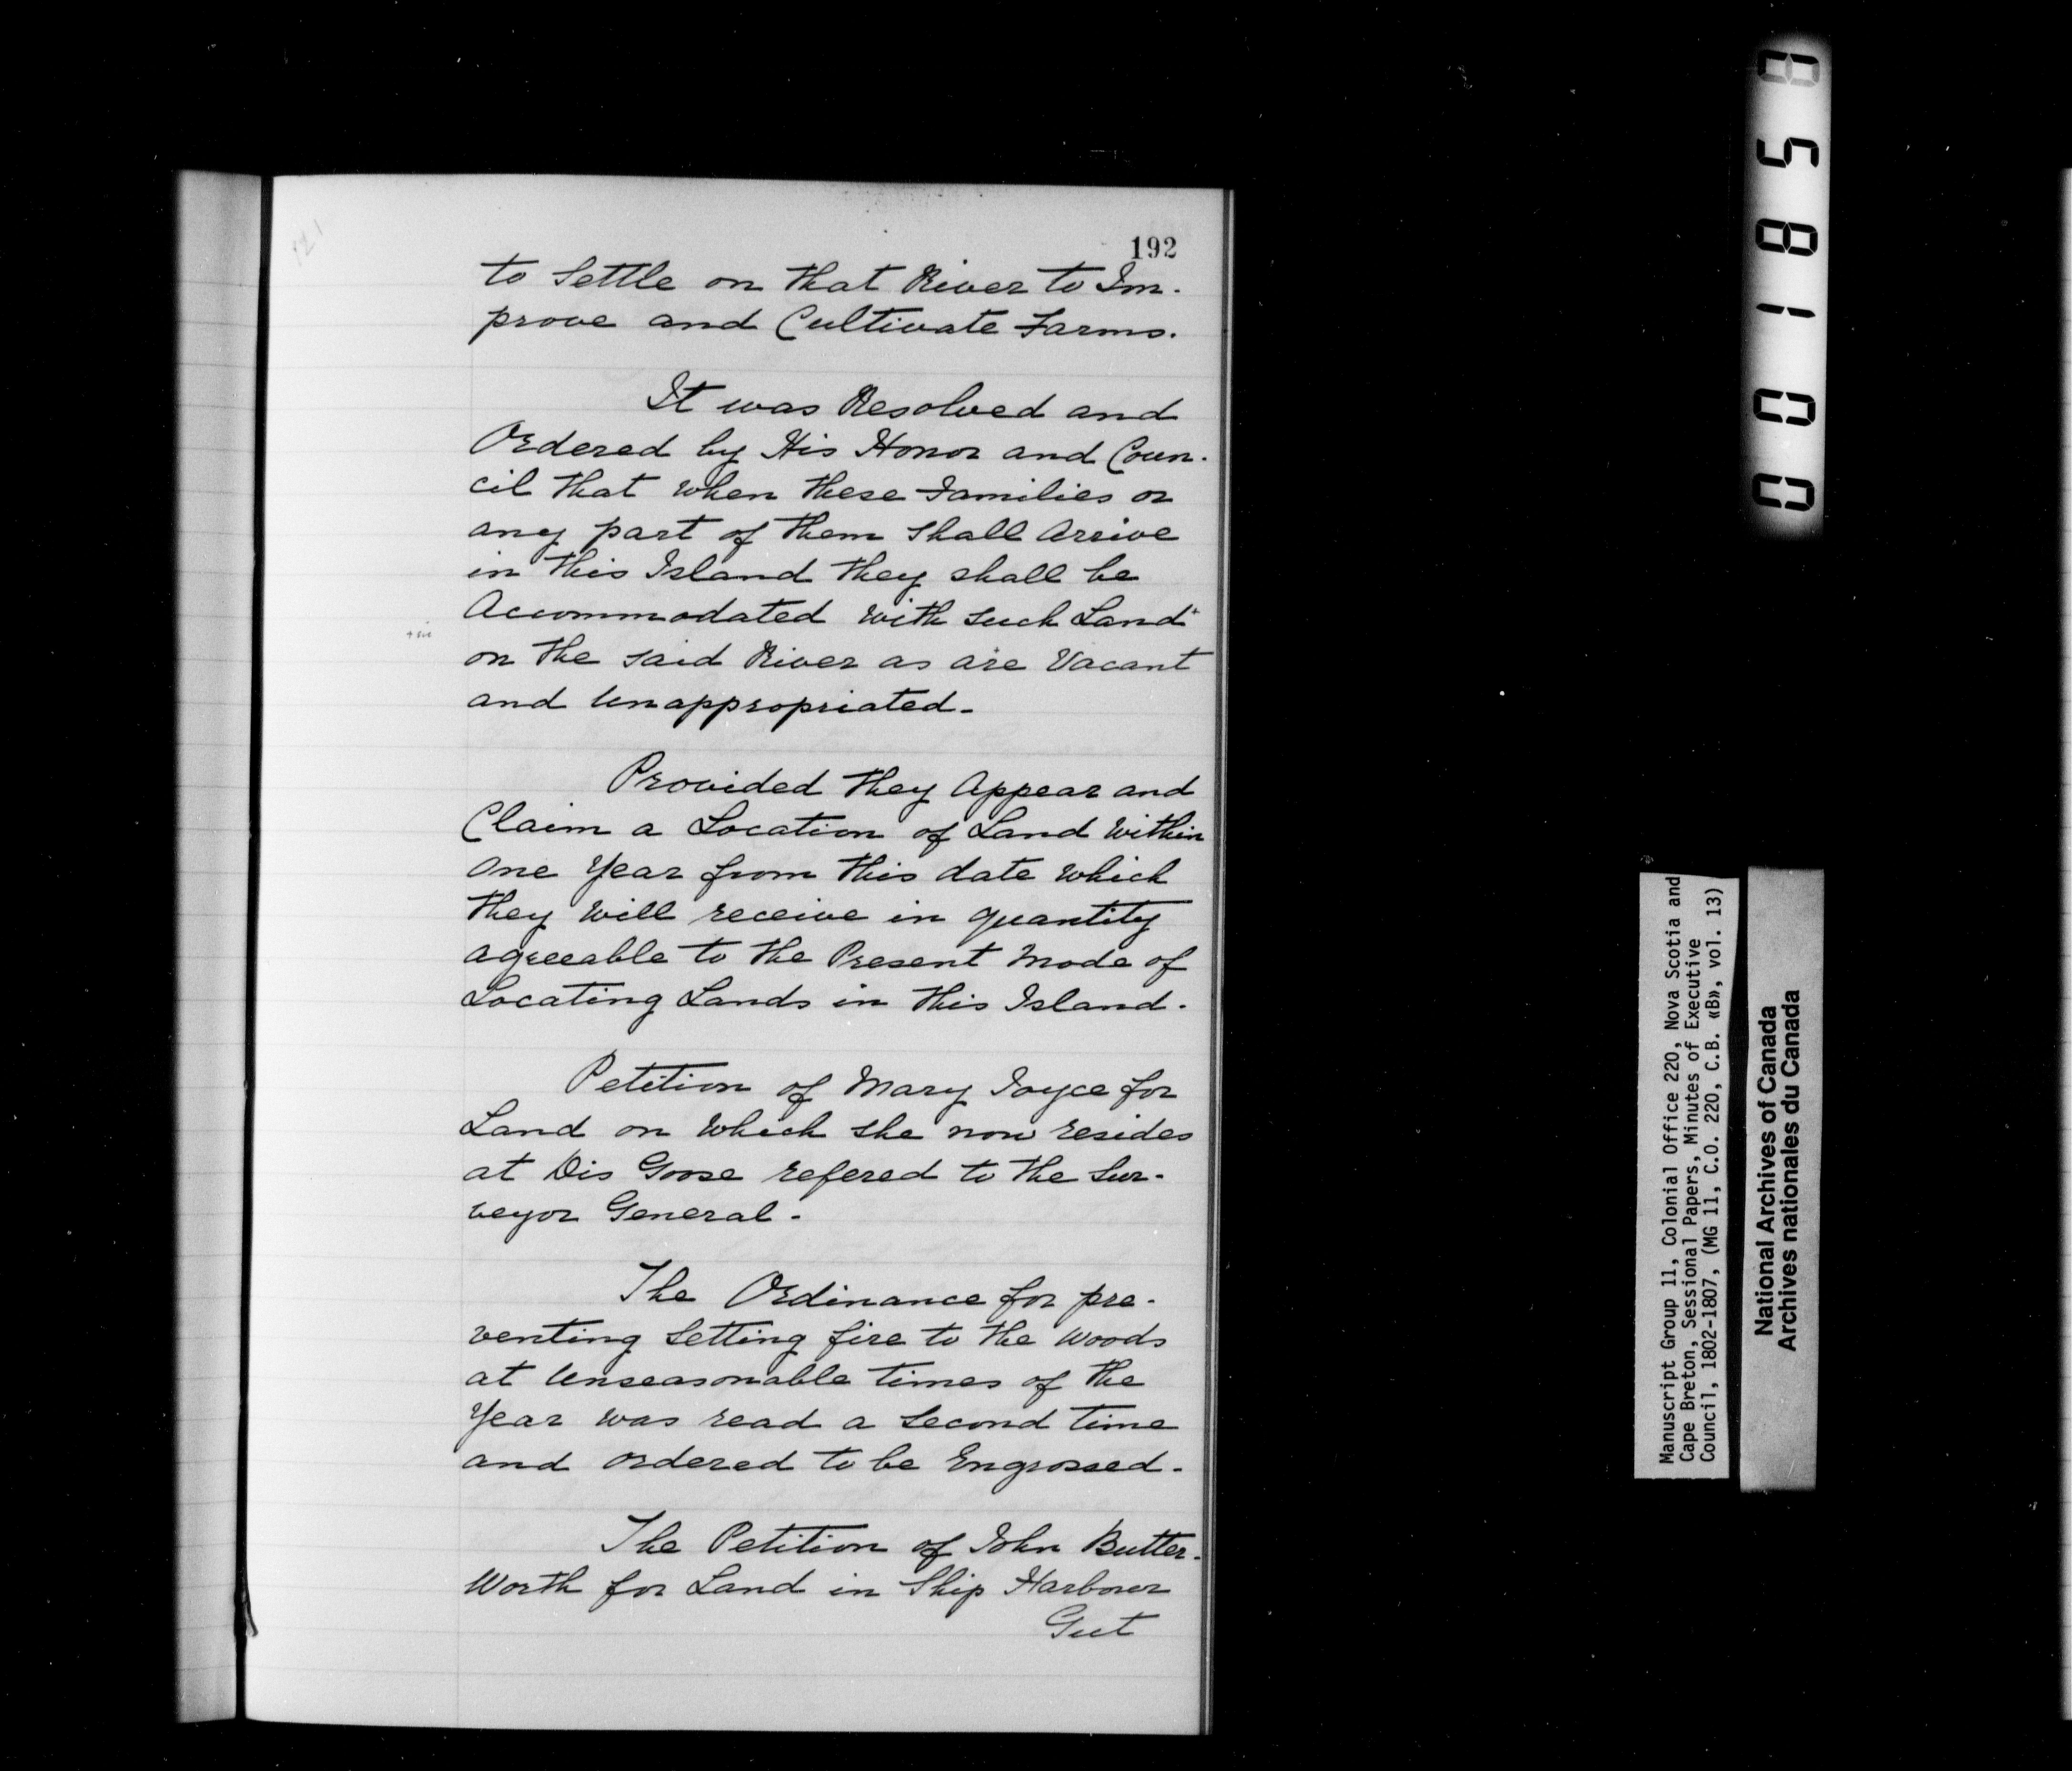 192
to Settle on that River to Im-
prove and Cultivate Farms.
It was Resolved and
Ordered by His Honor and Coun-
cil that when these Families or
any part of them shall Arrive
in this Island they shall be
Accommodated with such Land+
+ sic
on the said River as are Vacant
and Unappropriated-
Provided they Appear and
Claim a Location of Land Within
One Year from this date which
they will receive in quantity
agreeable to the Present Mode of
Locating Lands in this Island-
Petition of Mary Joyce for
Land on which she now resides
at Dis Goose refered to the Sur-
veyor General-
The Ordinance for pre-
venting Setting fire to the Woods
at Unseasonable times of the
Year was read a Second time
and ordered to be Engrossed-
The Petition of John Butter-
Worth for Land in Ship Harbour
Gut
001858
Manuscript Group 11, Colonial Office 220, Nova Scotia and
Cape Breton, Sessional Papers, Minutes of Executive
Council, 1802-1807, (MG 11, C.O. 220, C.B. «B», vol. 13)
National Archives of Canada
Archives nationales du Canada